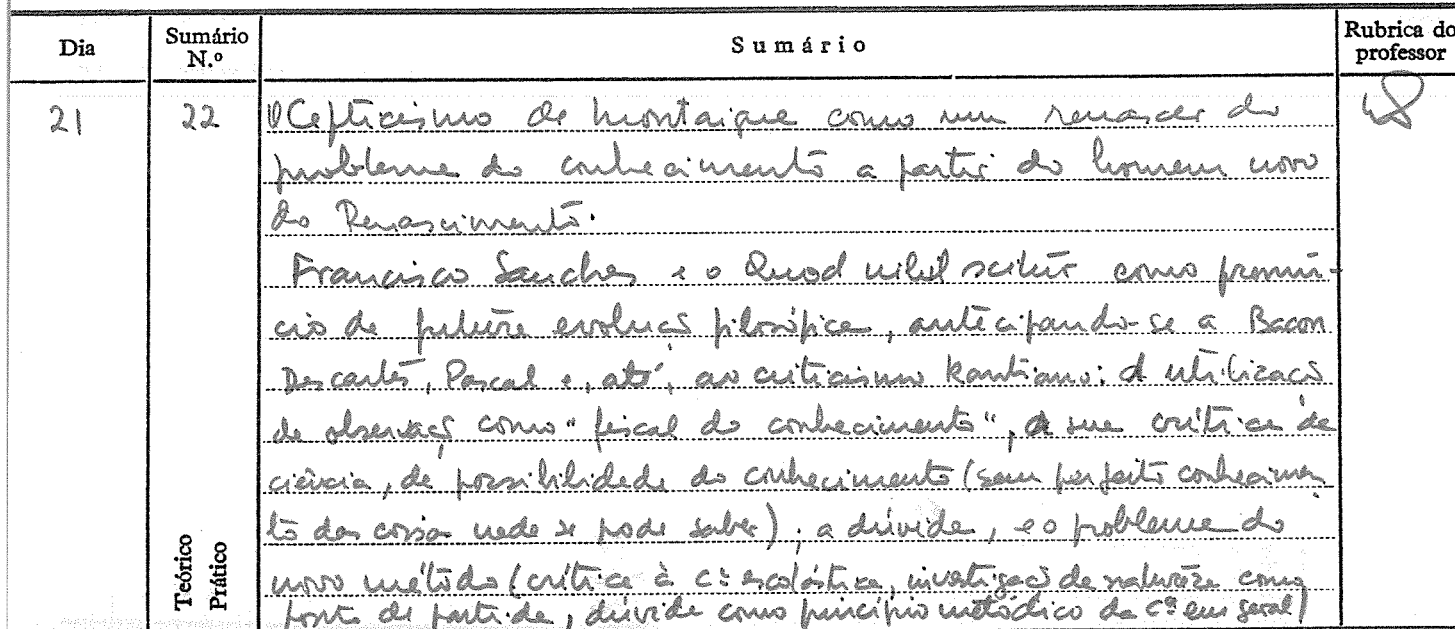 Dia
Sumário N.º
Sumário
Rubrica do professor
21
22
O Cepticismo de Montaigne como um renascer do
problema do conhecimento a partir do homem novo
do Renascimento.
Francisco Sanches e o Quod nihil scitur como prenún-
cio de futura evolução filosófica, antecipando-se a Bacon
Descartes, Pascal e, até, ao criticismo Kantiano: A utilização
da observação como "fiscal do conhecimento", a sua crítica da
ciência, da possibilidade do conhecimento (sem perfeito conhecimen
to das coisas nada se pode saber); a dúvida, e o problema do
novo método (crítica à Cª escolástica, investigação da natureza como
ponto de partida, dúvida como princípio metódico da Cª em geral)
Teórico
Prático